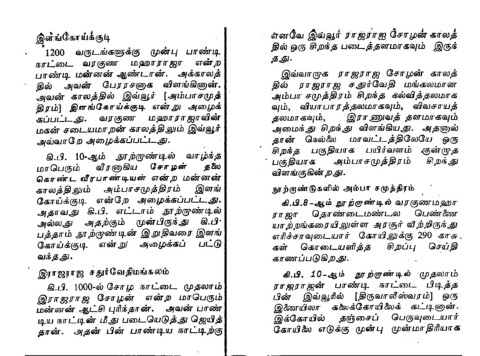 இளங்கோய்க்குடி
1200 வருடங்களுக்கு முன்பு பாண்டி
நாட்டை வரகுண மஹாராஜா என்ற
பாண்டி மன்னன் ஆண்டான். அக்காலத்
தில் அவன் பேரரசனாக விளங்கினான்.
அவன் காலத்தில் இவ்வூர் [அம்பாசமுத்
திரம்] இளங்கோய்க்குடி என்று அழைக்
கப்பட்டது. வரகுண மஹாராஜாவின்
மகன் சடையமாறன் காலத்திலும் இவ்வூர்
அவ்வாறே அழைக்கப்பட்டது.
கி.பி. 10-ஆம் நூற்றுண்டில் வாழ்ந்த
மாபெரும் வீரனாகிய சோழன் தலை
கொண்ட வீரபாண்டியன் என்ற மன்னன்
காலத்திலும் அம்பாசமுத்திரம் இளங்
கோய்க்குடி என்றே அழைக்கப்பட்டது.
அதாவது கி.பி. எட்டாம் நூற்றுண்டில்
அல்லது அதற்கும் முன்பிருந்து கி.பி'
பத்தாம் நூற்றுண்டின் இறுதிவரை இளங்
கோய்க்குடி என்று அழைக்கப் பட்டு
வந்தது.
இராஜராஜ சதுர்வேதிமங்கலம்
கி.பி. 1000-ல் சோழ நாட்டை முதலாம்
இராஜராஜ சோழன் என்ற மாபெரும்
மன்னன் ஆட்சி புரிந்தான். அவன் பாண்
டிய நாட்டின் மீது படையெடுத்து ஜெயித்
தான். அதன் பின் பாண்டிய நாட்டிற்கு
எனவே இவ்வூர் ராஜராஜ சோழன் காலத்
தில் ஒரு சிறந்த படைத்தளமாகவும் இருக்
தது.
இவ்வாறாக ராஜராஜ சோழன் காலத்
தில் ராஜராஜ சதுர்வேதி மங்கலமான
அம்பா சமுத்திரம் சிறந்த கல்வித்தலமாக
வும், வியாபாரத்தலமாகவும், விவசாயத்
தலமாகவும், இராணுவத் தளமாகவும்
அமைந்து சிறந்து விளங்கியது. அதனால்
தான் நெல்லை மாவட்டத்திலேயே ஒரு
சிறந்த பகுதியாக பயிர்வளம் குன்றாத
பகுதியாக அம்பாசமுத்திரம் சிறந்து
விளங்குகின்றது.
நூற்றுண்டுகளில் அம்பா சமுத்திரம்
கி.பி.8-ஆம் நூற்றுண்டில் வரகுணமஹா
ராஜா தொண்டைமண்டல பெண்ணை
யாற்றங்கரையிலுள்ள அரசூர் வீற்றிருந்து
எரிச்சாவுடையார் கோயிலுக்கு 290 காசு.
கள் கொடையளித்த சிறப்பு செய்தி
காணப்படுகிறது.
கி.பி. 10-ஆம் நூற்றுண்டில் முதலாம்
ராஜராஜன் பாண்டி நாட்டை பிடித்த
பின் இவ்வூரில் [திருவாலீஸ்வரம்] ஒரு
இணையிலா கலைக்கோயிலைக் கட்டினான்.
இக்கோயில் தஞ்சைப் பெருவுடையார்
கோயிலை எடுக்கு முன்பு முன்மாதிரியாக